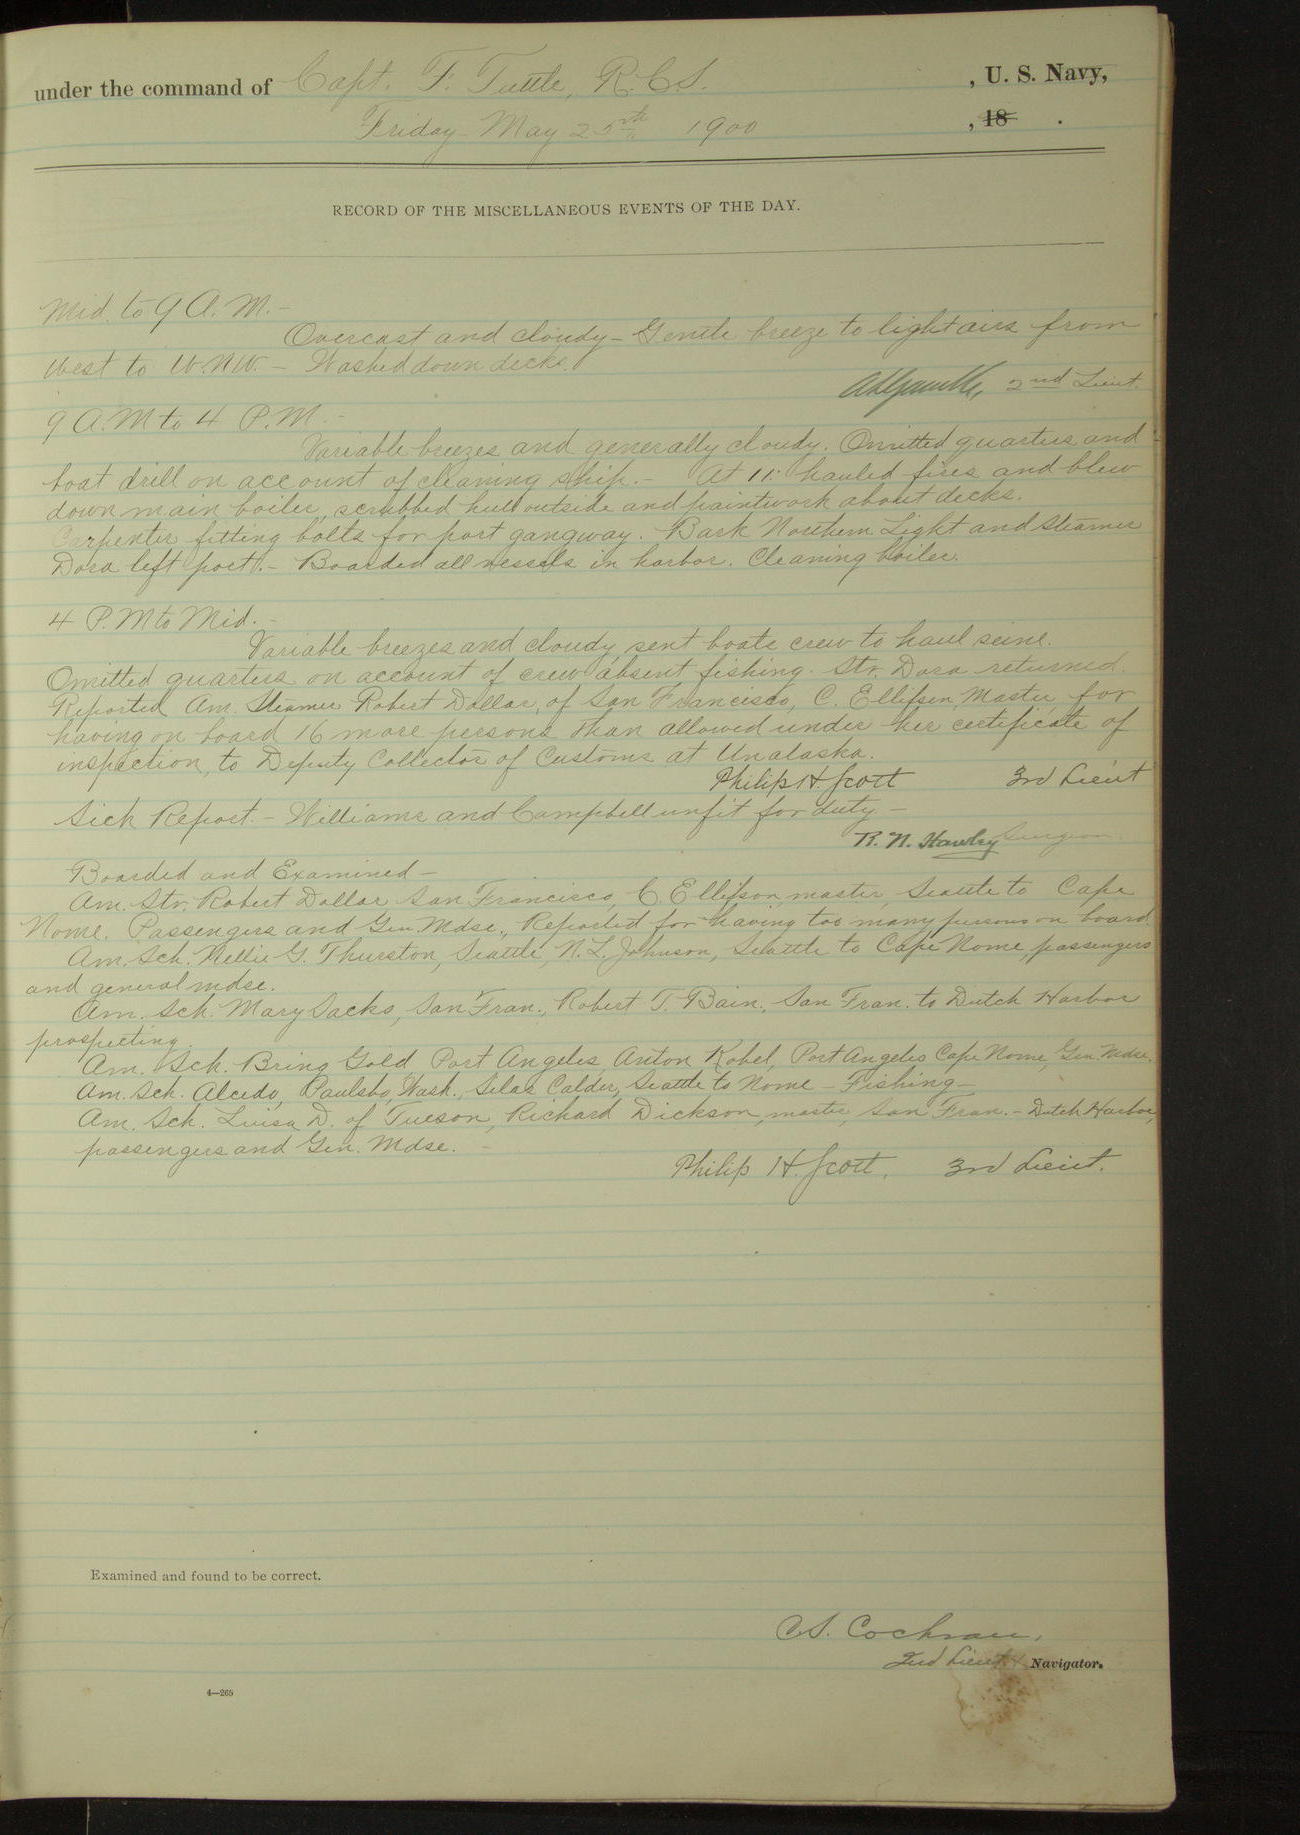 under the command of Capt. F. Tuttle, R.C.S. , U. S. Navy,
Friday May 25th 1900 , 18 .
RECORD OF THE MISCELLANEOUS EVENTS OF THE DAY.
Mid. to 9 A. M. -
Overcast and cloudy - Gentle breeze to light airs from
West to W.N.W. - Washed down decks.
2nd Lieut.
9 A.M to 4 P.M. -
Variable breezes and generally cloudy. Omitted quarters and
boat drill on account of cleaning ship. - At 11: hauled fires and blew
down main boiler, scrubbed hull outside and paintwork about decks.
Carpenter fitting bolts for port gangway. Bark Northern Light and steamer
Dora left port. - Boarded all vessels in harbor. Cleaning boiler.
4 P.M to Mid. -
Variable breezes and cloudy, sent boats crew to haul seine.
Omitted quarters on account of crew absent fishing. Str. Dora returned.
Reported Am. Steamer Robert Dollar, of San Francisco, C. Ellefsen, Master, for
having on board 16 more persons than allowed under her certificate of
inspection, to Deputy Collector of Customs at Unalaska.
Philip H. Scott 3rd Lieut
Sick Report. - Williams and Campbell unfit for duty -
R. N. Hawley Surgeon
Boarded and Examined -
Am. Str. Robert Dollar San Francisco, C. Ellefson, master, Seattle to Cape
Nome. Passengers and Gen Mdse., Reported for having too many persons on board.
Am. Sch. Nellie G. Thurston, Seattle, N. L. Johnson, Seattle to Cape Nome, passengers
and general mdse.
Am. Sch. Mary Sacks, San Fran., Robert T. Bain, San Fran. to Dutch Harbor
prospecting.
Am. Sch. Bring Gold, Port Angeles, Anton Kobel, Port Angeles Cape Nome, Gen Mdse.
Am. Sch. Alcedo, Paulsbo, Wash., Silas Calder, Seattle to Nome - Fishing -
Am. Sch. Luisa D. of Tucson, Richard Dickson, master, San Fran. - Dutch Harbor,
passengers and Gen. Mdse. -
Philip H. Scott, 3rd Lieut.
Examined and found to be correct.
C.S. Cochran,
2nd Lieut. & Navigator.
4—265